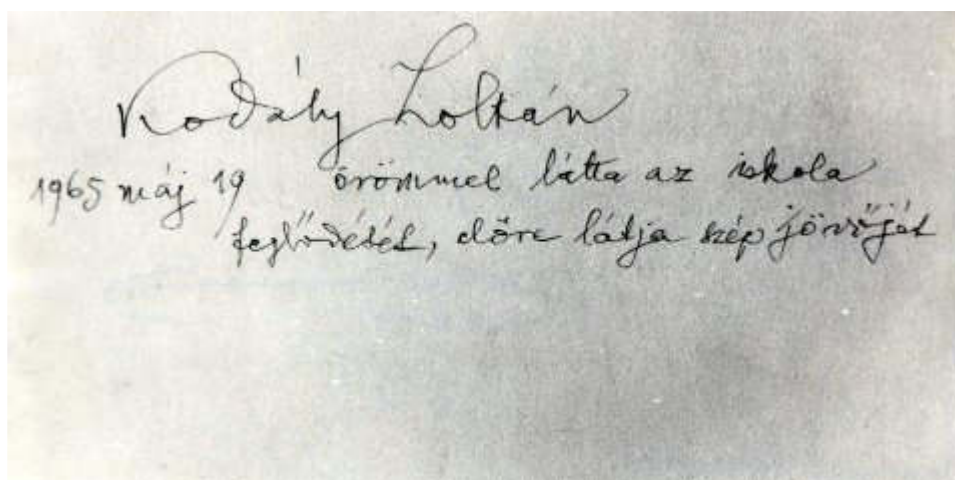 Kodály Zoltán
1965 máj 19 örömmel látta az iskola
fejlődését, előre látja szép jövőjét